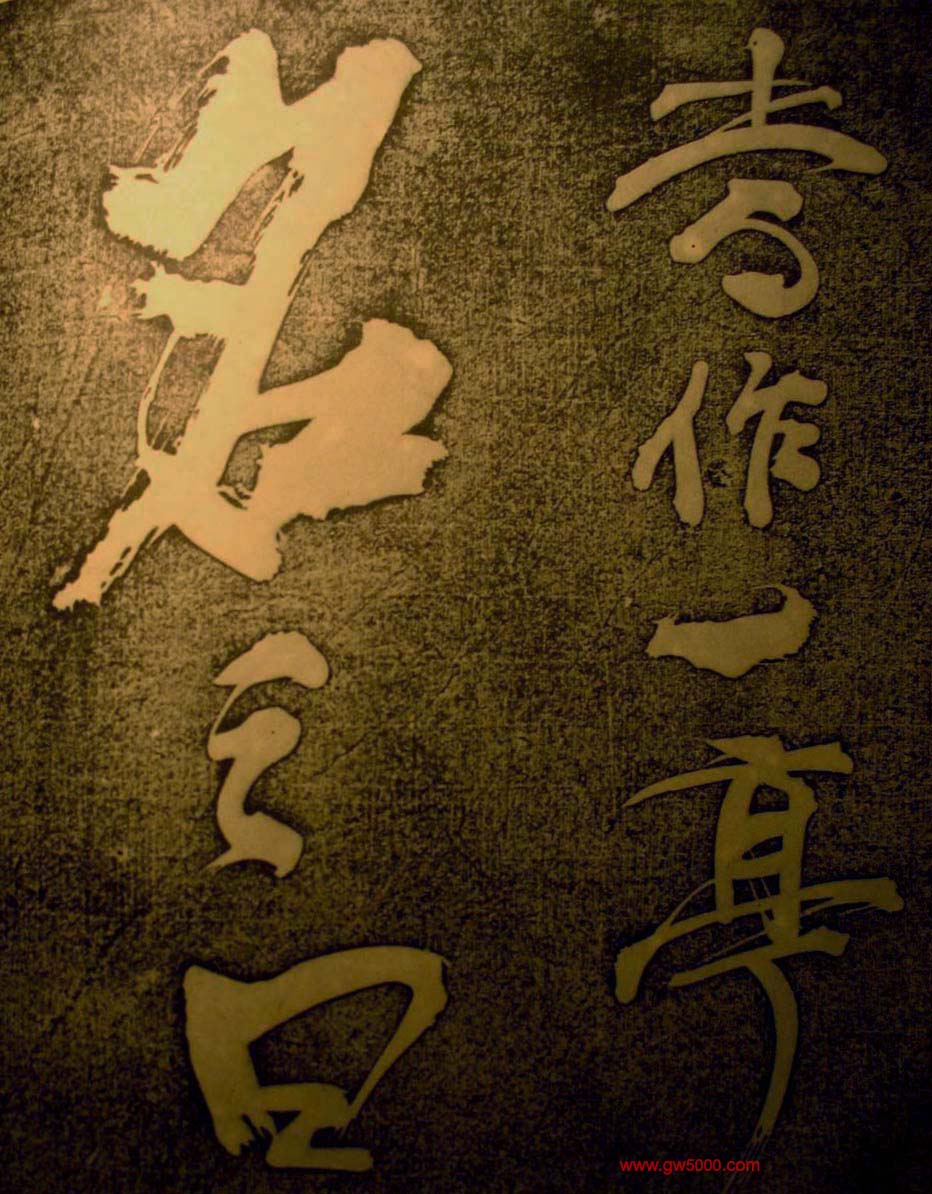 作一亭
名之曰
www.gw5000.com